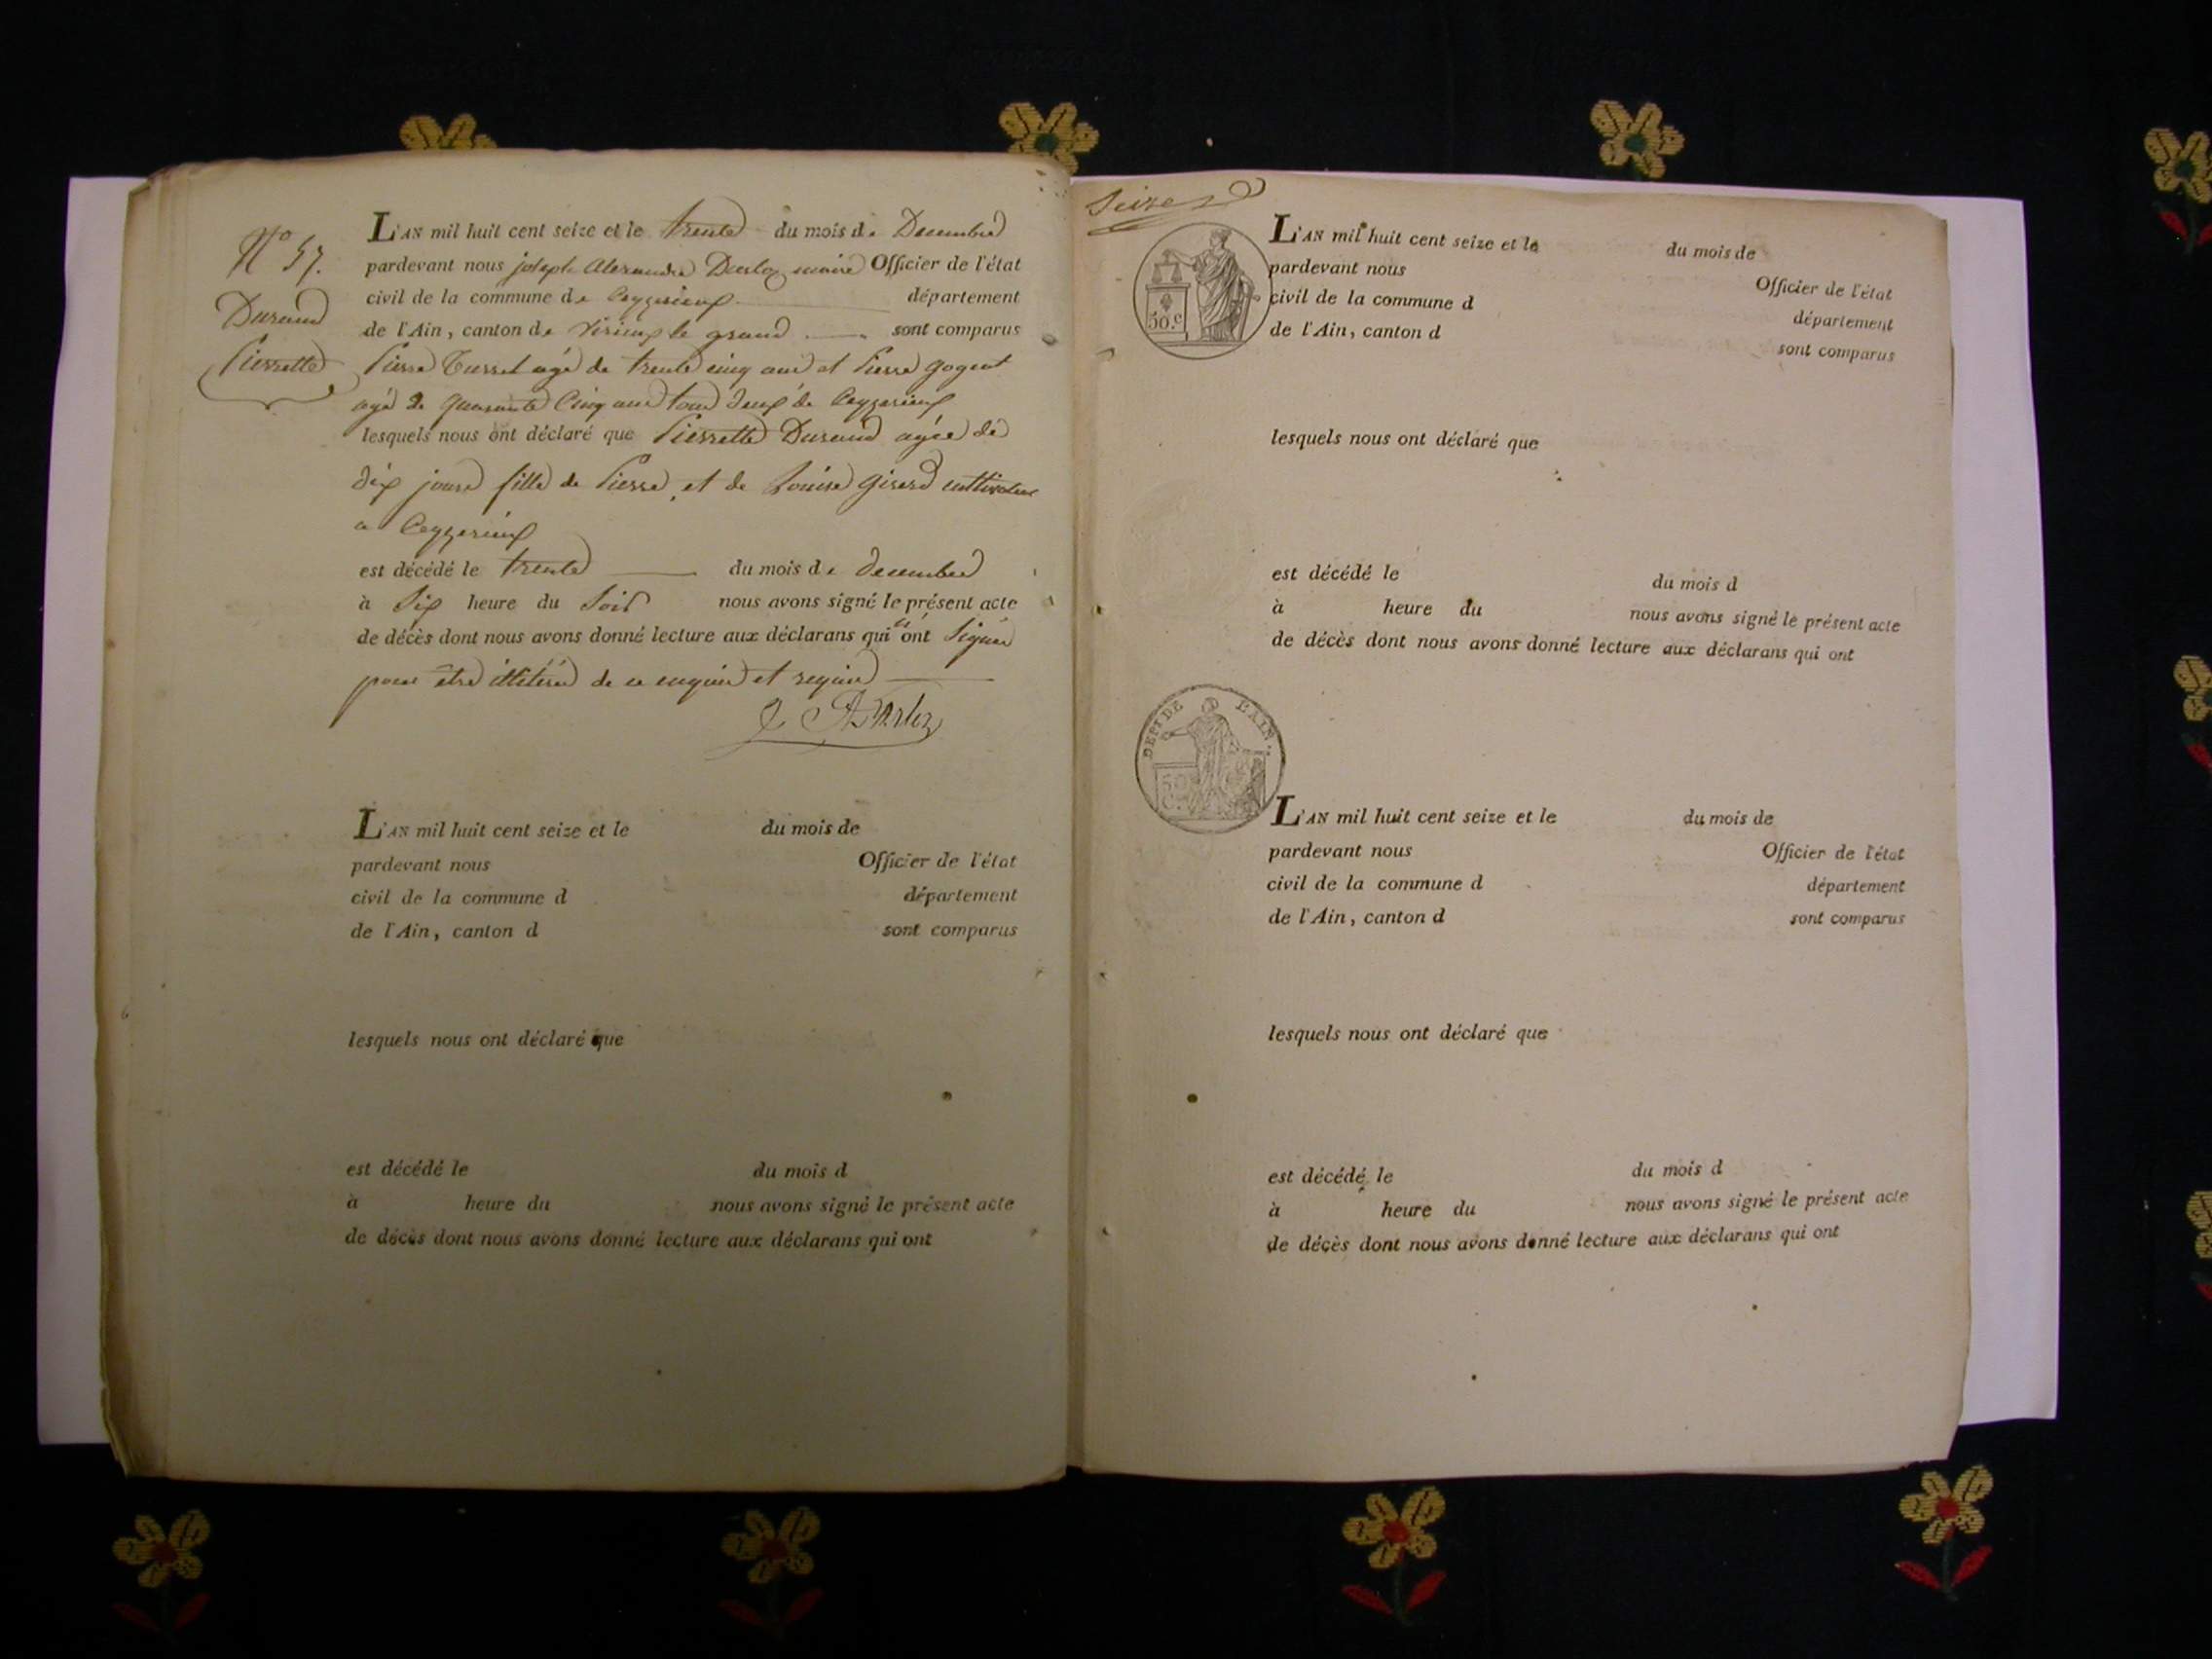 N.º 57.
Durand
Pierrette
L'AN mil huit cent seize et le trente du mois de Decembre
pardevant nous joseph Alexandre Darloz maire Officier de l'état
civil de la commune de Ceyzerieux département
de l'Ain, canton de Virieux le grand sont comparus
Pierre Tusset agé de trente cinq ans et Pierre gogent
agé de quarante Cinq ans tous deux de Ceyzerieux
lesquels nous ont déclaré que Pierrette Durand agée de
dix jours fille de Pierre, et de Louise Girerd cultivateur
a Ceyzerieux
est décédé le trente du mois de decembre
à Six heure du Soir nous avons signé le présent acte
de décès dont nous avons donné lecture aux déclarans qui ont Signer
pour être illitéré de ce enquis et requis
J A Darloz
L'AN mil huit cent seize et le du mois de
pardevant nous Officier de l'état
civil de la commune d département
de l'Ain, canton d sont comparus
lesquels nous ont déclaré que
est décédé le du mois d
à heure du nous avons signé le présent acte
de décès dont nous avons donné lecture aux déclarans qui ont
Seize
50.c
L'AN mil huit cent seize et le du mois de
pardevant nous Officier de l'état
civil de la commune d département
de l'Ain, canton d sont comparus
lesquels nous ont déclaré que
est décédé le du mois d
à heure du nous avons signé le présent acte
de décès dont nous avons donné lecture aux déclarans qui ont
DEPT DE L'AIN.
50
C.
L'AN mil huit cent seize et le du mois de
pardevant nous Officier de l'état
civil de la commune d département
de l'Ain, canton d sont comparus
lesquels nous ont déclaré que
est décédé le du mois d
à heure du nous avons signé le présent acte
de décès dont nous avons donné lecture aux déclarans qui ont